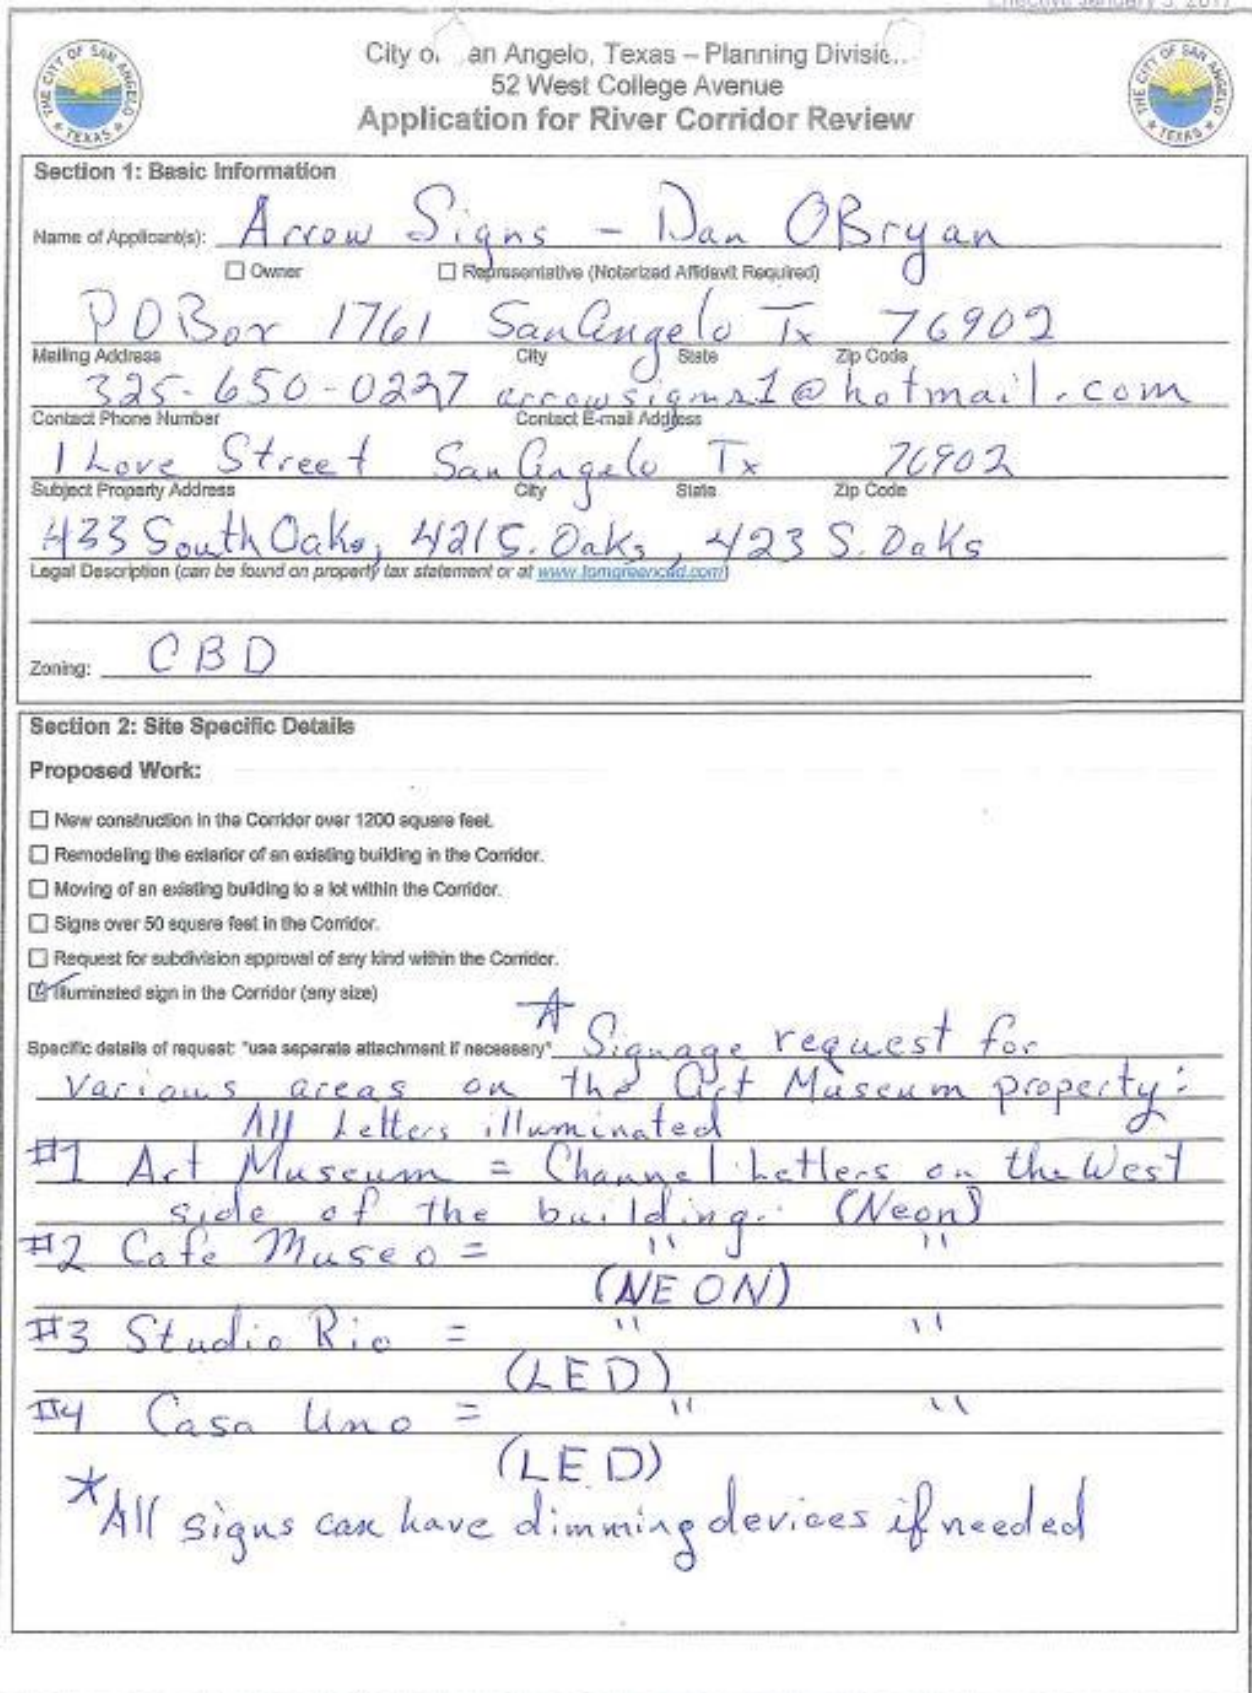 Effective January 3, 2017
City of San Angelo, Texas – Planning Division
52 West College Avenue
Application for River Corridor Review
THE CITY OF SAN ANGELO
TEXAS
THE CITY OF SAN ANGELO
TEXAS
Section 1: Basic Information
Name of Applicant(s): Arrow Signs - Dan OBryan
☐ Owner ☐ Representative (Notarized Affidavit Required)
PO Box 1761 San Angelo Tx 76902
Mailing Address City State Zip Code
325-650-0227 arrowsigns1@hotmail.com
Contact Phone Number Contact E-mail Address
1 Love Street San Angelo Tx 76902
Subject Property Address City State Zip Code
433 South Oaks, 421 S. Oaks, 423 S. Oaks
Legal Description (can be found on property tax statement or at www.tomgreencad.com)
Zoning: CBD
Section 2: Site Specific Details
Proposed Work:
☐ New construction in the Corridor over 1200 square feet.
☐ Remodeling the exterior of an existing building in the Corridor.
☐ Moving of an existing building to a lot within the Corridor.
☐ Signs over 50 square feet in the Corridor.
☐ Request for subdivision approval of any kind within the Corridor.
☑ Illuminated sign in the Corridor (any size)
Specific details of request: *use separate attachment if necessary* * Signage request for
various areas on the Art Museum property:
All Letters illuminated
#1 Art Museum = Channel Letters on the West
side of the building. (Neon)
#2 Cafe Museo = " "
(NEON)
#3 Studio Rio = " "
(LED)
#4 Casa Uno = " "
(LED)
*All signs can have dimming devices if needed